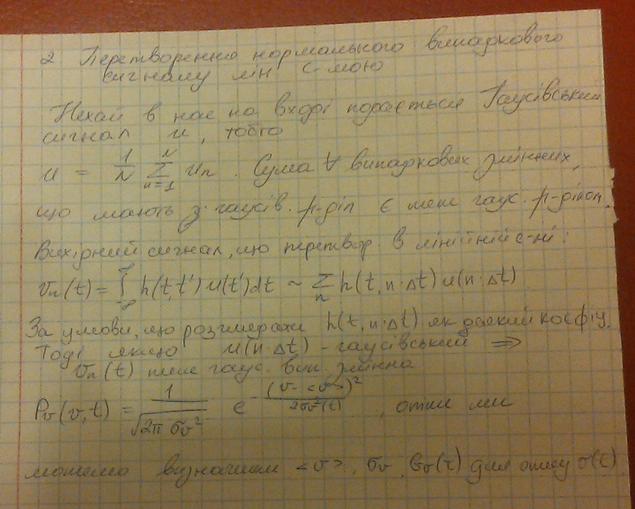 2 Перетворення нормального випадкового
сигналу лін с-мою
Нехай в нас на вході подається Гаусівський
сигнал u, тобто
u = 1/N Σ_{n=1}^{N} u_n . Сума ∀ випадкових змінних,
що мають з гаусів. р-діл є теж гаус. р-ділом.
Вихідний сигнал, що перетвор. в лінійній с-мі:
v_n(t) = ∫_{-∞}^{∞} h(t,t') u(t')dt ~ Σ_n h(t, n·Δt) u(n·Δt)
За умови, що розглядати h(t, n·Δt) як деякий коефіц.
Тоді якщо u(n·Δt) - гаусівський ⇒
v_n(t) теж гаус. вип. змінна
P_v(v,t) = 1/√(2π σ_v²) e^{-(v-<v>)²/(2σ_v²(t))} , отже ми
можемо визначити <v>, σ_v, B_v(τ) для опису v(t)